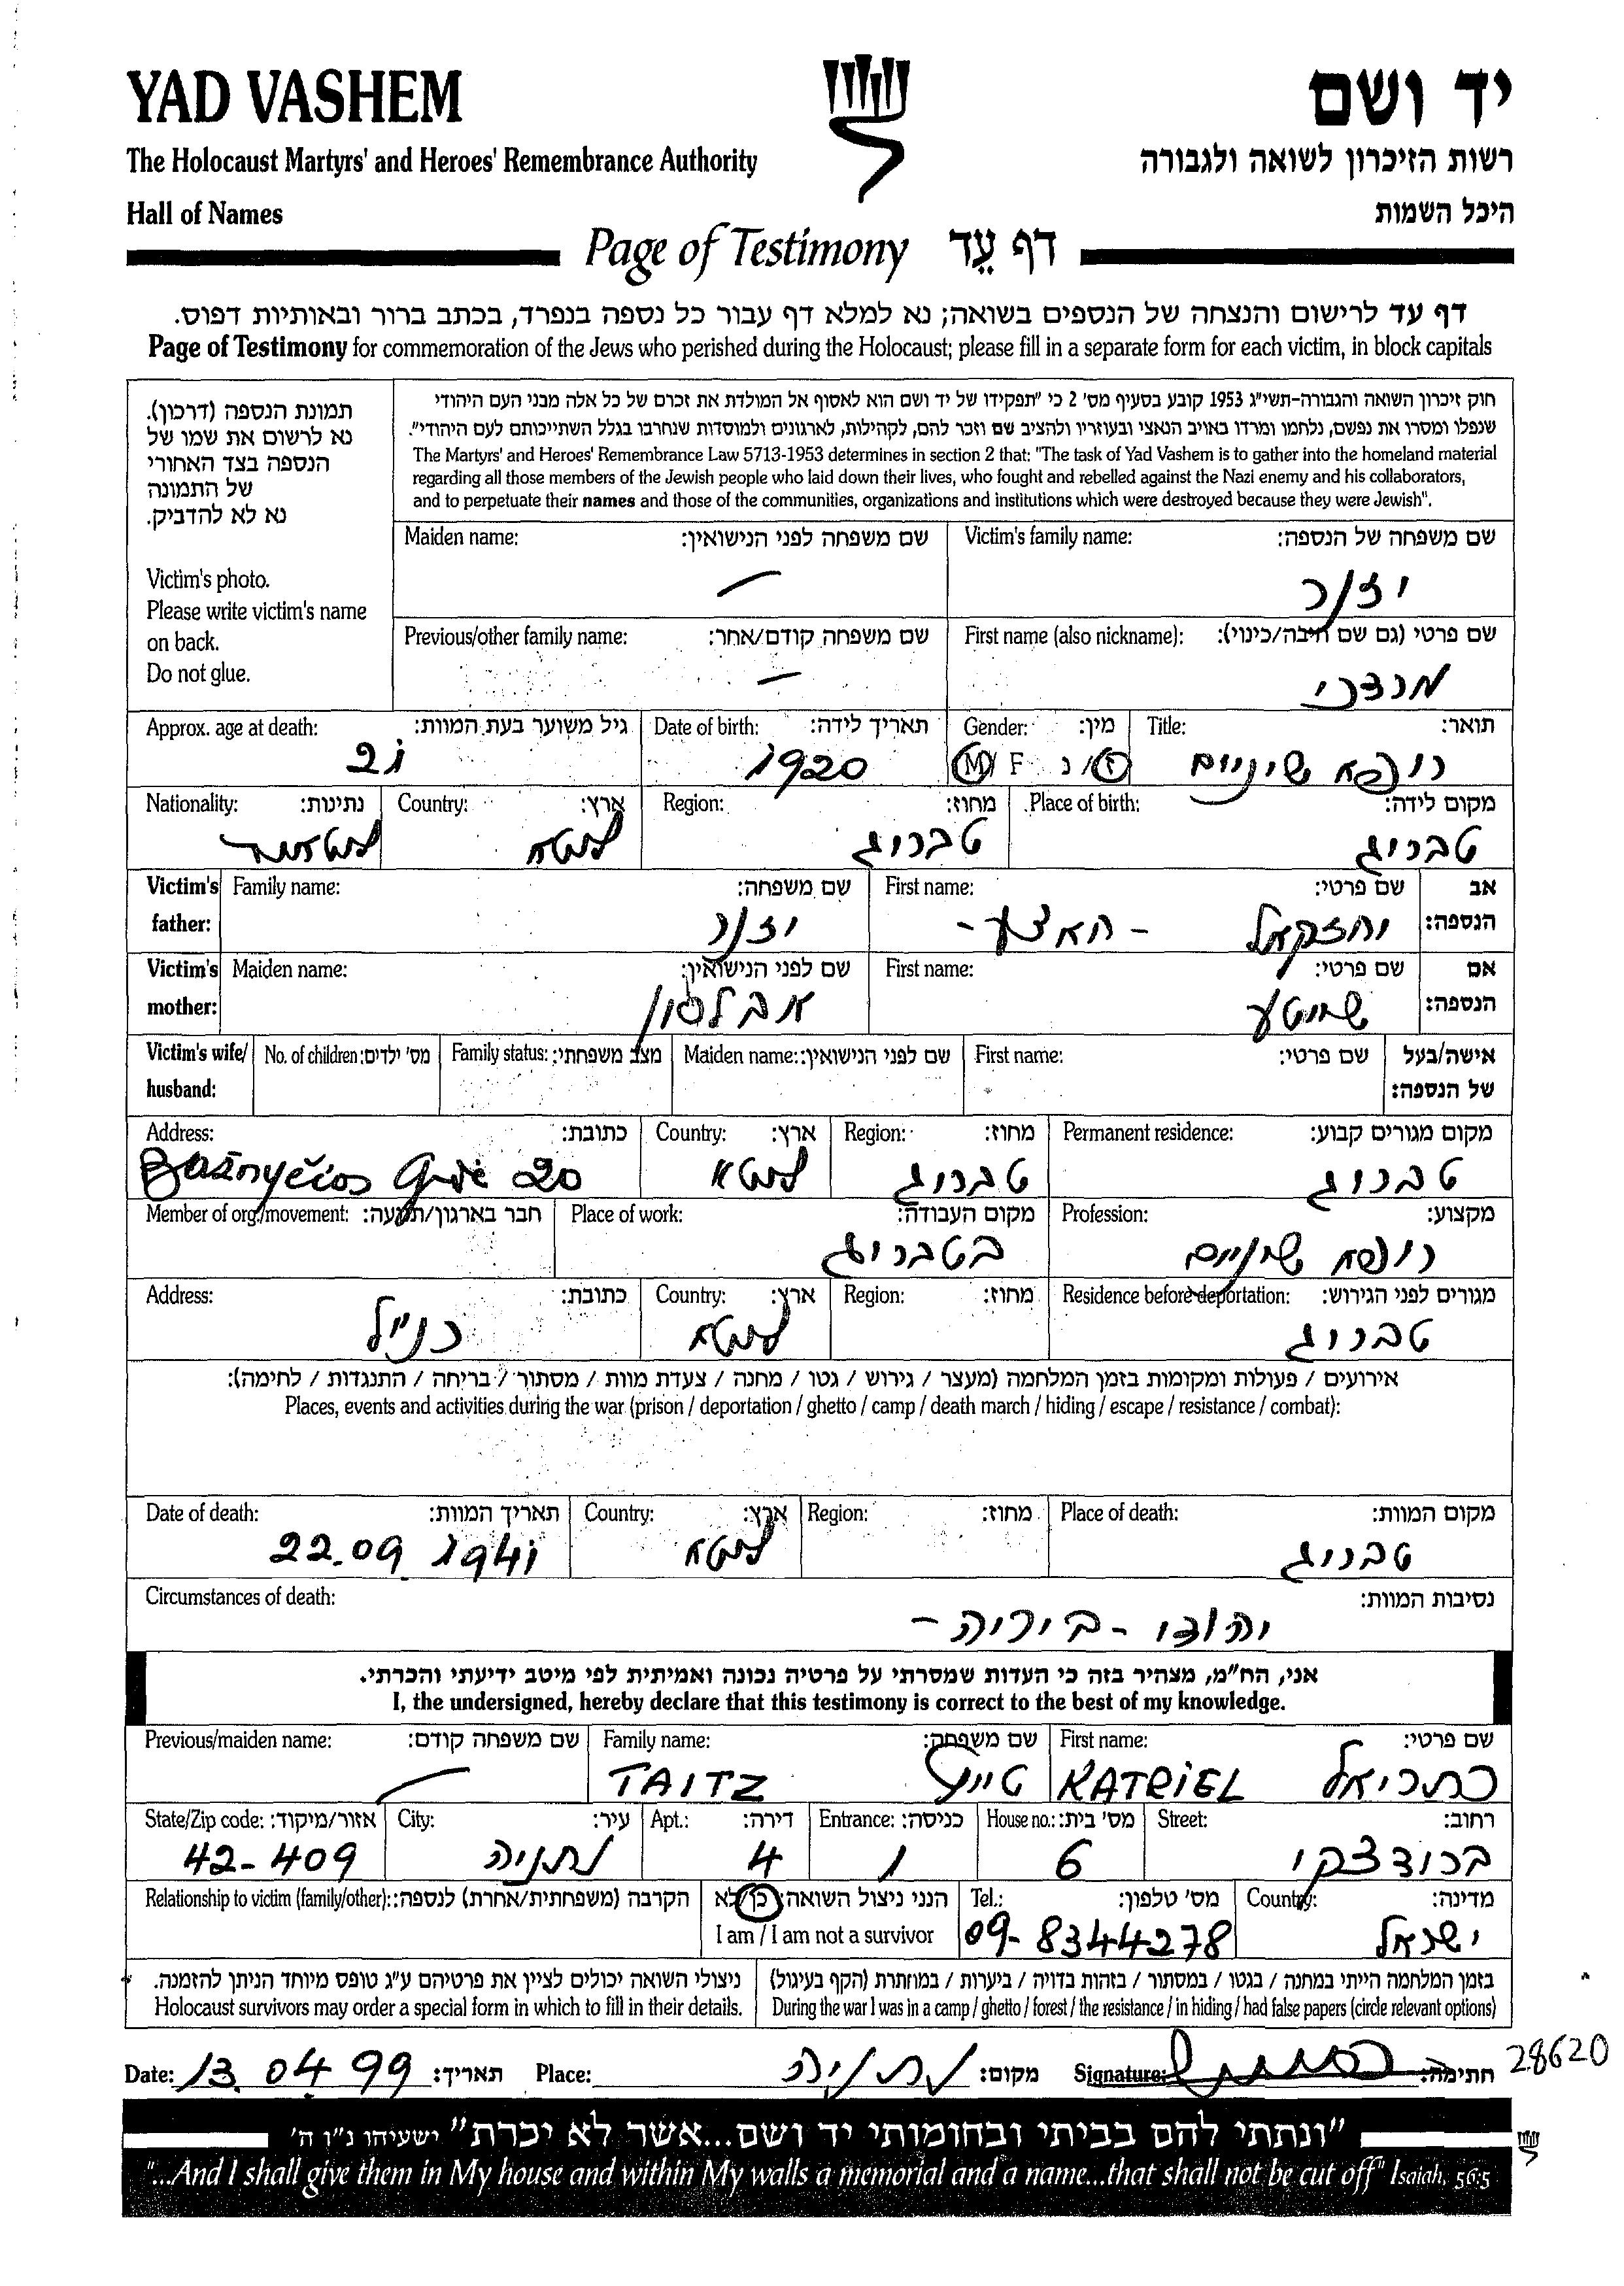 YAD VASHEM
יד ושם
The Holocaust Martyrs' and Heroes' Remembrance Authority
רשות הזיכרון לשואה ולגבורה
Hall of Names
היכל השמות
Page of Testimony דף עֵד
דף עד לרישום והנצחה של הנספים בשואה; נא למלא דף עבור כל נספה בנפרד, בכתב ברור ובאותיות דפוס.
Page of Testimony for commemoration of the Jews who perished during the Holocaust; please fill in a separate form for each victim, in block capitals
תמונת הנספה (דרכון).
נא לרשום את שמו של
הנספה בצד האחורי
של התמונה
נא לא להדביק.
Victim's photo.
Please write victim's name
on back.
Do not glue.
חוק זיכרון השואה והגבורה-תשי"ג 1953 קובע בסעיף מס' 2 כי "תפקידו של יד ושם הוא לאסוף אל המולדת את זכרם של כל אלה מבני העם היהודי
שנפלו ומסרו את נפשם, נלחמו ומרדו באויב הנאצי ובעוזריו ולהציב שם וזכר להם, לקהילות, לארגונים ולמוסדות שנחרבו בגלל השתייכותם לעם היהודי".
The Martyrs' and Heroes' Remembrance Law 5713-1953 determines in section 2 that: "The task of Yad Vashem is to gather into the homeland material
regarding all those members of the Jewish people who laid down their lives, who fought and rebelled against the Nazi enemy and his collaborators,
and to perpetuate their names and those of the communities, organizations and institutions which were destroyed because they were Jewish".
Victim's family name: שם משפחה של הנספה:
Maiden name: שם משפחה לפני הנישואין:
First name (also nickname): שם פרטי (גם שם חיבה/כינוי):
Previous/other family name: שם משפחה קודם/אחר:
Title: תואר:
רופא שיניים
Gender: מין:
M/ F ז/נ
Date of birth: תאריך לידה:
1920
Approx. age at death: גיל משוער בעת המוות:
21
Place of birth: מקום לידה:
טברוג
Region: מחוז:
טברוג
Country: ארץ:
ליטא
Nationality: נתינות:
Victim's father: אב הנספה:
First name: שם פרטי:
יחזקאל
Family name: שם משפחה:
Victim's mother: אם הנספה:
First name: שם פרטי:
Maiden name: שם לפני הנישואין:
Victim's wife/ husband: אישה/בעל של הנספה:
First name: שם פרטי:
Maiden name: שם לפני הנישואין:
Family status: מצב משפחתי:
No. of children: מס' ילדים:
Permanent residence: מקום מגורים קבוע:
טברוג
Region: מחוז:
טברוג
Country: ארץ:
ליטא
Address: כתובת:
Bažnyčios 20
Profession: מקצוע:
רופא שיניים
Place of work: מקום העבודה:
בטברוג
Member of org./movement: חבר בארגון/תנועה:
Residence before deportation: מגורים לפני הגירוש:
טברוג
Region: מחוז:
Country: ארץ:
ליטא
Address: כתובת:
כנ"ל
אירועים / פעולות ומקומות בזמן המלחמה (מעצר / גירוש / גטו / מחנה / צעדת מוות / מסתור / בריחה / התנגדות / לחימה):
Places, events and activities during the war (prison / deportation / ghetto / camp / death march / hiding / escape / resistance / combat):
Place of death: מקום המוות:
טברוג
Region: מחוז:
Country: ארץ:
ליטא
Date of death: תאריך המוות:
22.09 1941
Circumstances of death: נסיבות המוות:
יהודי - ביריה -
אני, הח"מ, מצהיר בזה כי העדות שמסרתי על פרטיה נכונה ואמיתית לפי מיטב ידיעתי והכרתי.
I, the undersigned, hereby declare that this testimony is correct to the best of my knowledge.
First name: שם פרטי:
KATRIEL כתריאל
Family name: שם משפחה:
TAITZ טייץ
Previous/maiden name: שם משפחה קודם:
Street: רחוב:
ברודצקי
House no.: מס' בית:
6
Entrance: כניסה:
1
Apt.: דירה:
4
City: עיר:
נתניה
State/Zip code: אזור/מיקוד:
42-409
Country: מדינה:
ישראל
Tel.: מס' טלפון:
09-8344278
הנני ניצול השואה: כן/לא
I am / I am not a survivor
Relationship to victim (family/other): הקרבה (משפחתית/אחרת) לנספה:
בזמן המלחמה הייתי במחנה / בגטו / במסתור / בזהות בדויה / ביערות / במחתרת (הקף בעיגול)
During the war I was in a camp / ghetto / forest / the resistance / in hiding / had false papers (circle relevant options)
ניצולי השואה יכולים לציין את פרטיהם ע"ג טופס מיוחד הניתן להזמנה.
Holocaust survivors may order a special form in which to fill in their details.
Date: 13.04.99 תאריך: Place: נתניה מקום: Signature: חתימה:
28620
"ונתתי להם בביתי ובחומותי יד ושם...אשר לא יכרת" ישעיהו נ"ו ה'
"...And I shall give them in My house and within My walls a memorial and a name...that shall not be cut off" Isaiah, 56:5